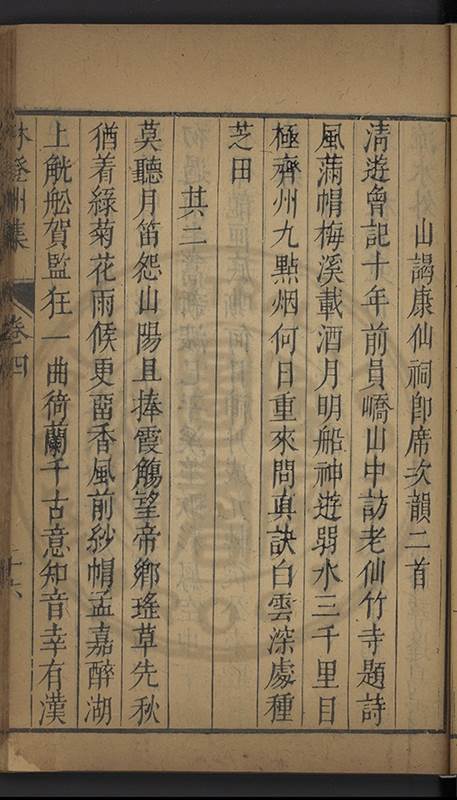 山謁康仙祠即席次韻二首
清遊會記十年前員嶠山中訪老仙竹寺題詩
風滿帽梅溪載酒月明船神遊弱水三千里目
極齊州九點烟何日重來問真訣白雲深處種
芝田
其二
莫聽月笛怨山陽且捧霞觴望帝鄉瑤草先秋
猶着綠菊花雨候更畱香風前紗帽孟嘉醉湖
上觥船賀監狂一曲猗蘭千古意知音幸有漢
林登州集 卷四 十六